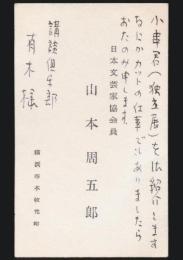 小車君(独立展)を御紹介します
なにかカットの仕事でもありましたら
おたのみ申します。
日本文芸家協会員
山本周五郎
横浜市本牧元町
講談倶楽部
青木様